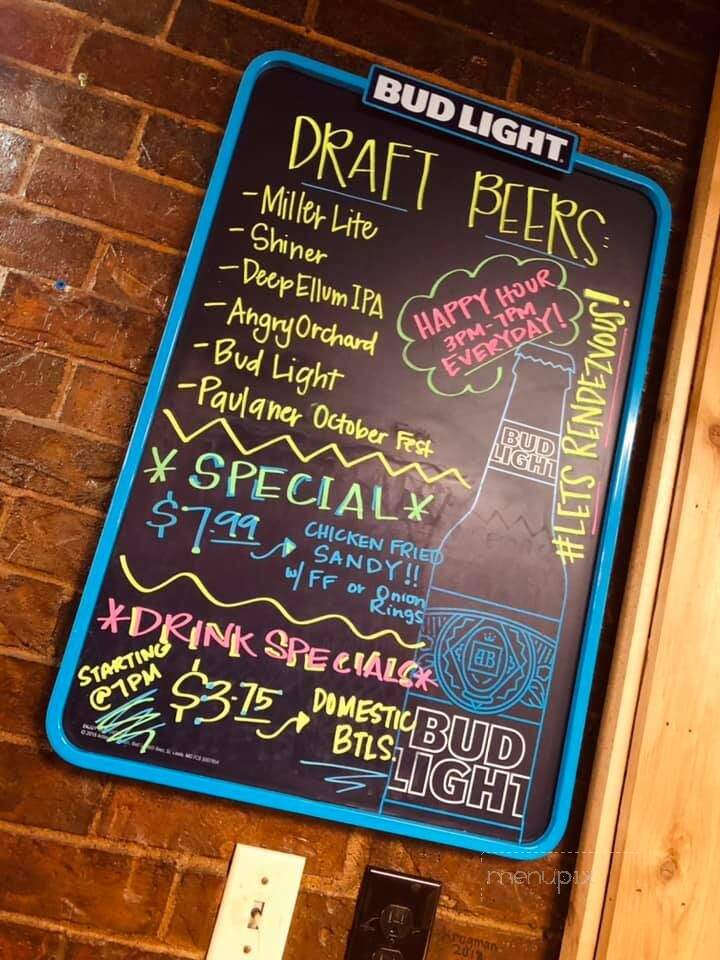 BUD LIGHT
DRAFT BEERS:
- Miller Lite
- Shiner
- Deep Ellum IPA
- Angry Orchard
- Bud Light
- Paulaner October Fest
HAPPY HOUR
3PM-7PM
EVERYDAY!
#LETS RENDEZVOUS!
* SPECIAL *
$7.99
CHICKEN FRIED
SANDY!!
w/ FF or Onion
Rings
*DRINK SPECIALS*
STARTING
@7PM
$3.75
DOMESTIC
BTLS.
BUD
LIGHT
BUD
LIGHT
menupix
Krugman